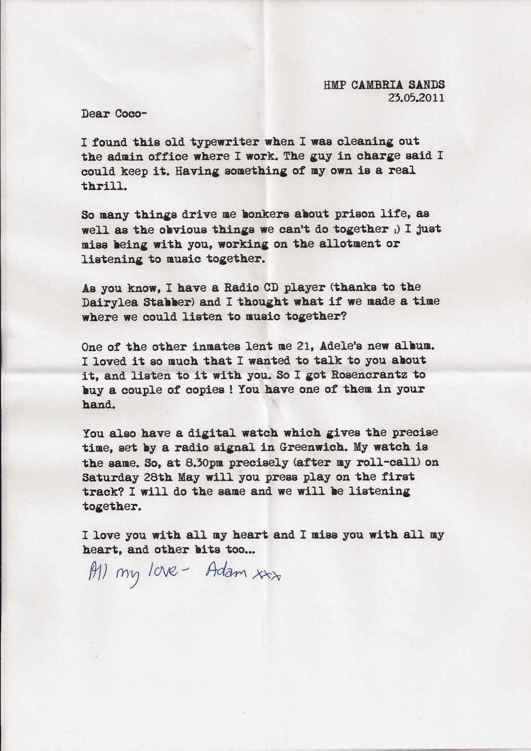 HMP CAMBRIA SANDS
23.05.2011
Dear Coco-
I found this old typewriter when I was cleaning out
the admin office where I work. The guy in charge said I
could keep it. Having something of my own is a real
thrill.
So many things drive me bonkers about prison life, as
well as the obvious things we can't do together ;) I just
miss being with you, working on the allotment or
listening to music together.
As you know, I have a Radio CD player (thanks to the
Dairylea Stabber) and I thought what if we made a time
where we could listen to music together?
One of the other inmates lent me 21, Adele's new album.
I loved it so much that I wanted to talk to you about
it, and listen to it with you. So I got Rosencrantz to
buy a couple of copies ! You have one of them in your
hand.
You also have a digital watch which gives the precise
time, set by a radio signal in Greenwich. My watch is
the same. So, at 8.30pm precisely (after my roll-call) on
Saturday 28th May will you press play on the first
track? I will do the same and we will be listening
together.
I love you with all my heart and I miss you with all my
heart, and other bits too...
All my love- Adam xxx